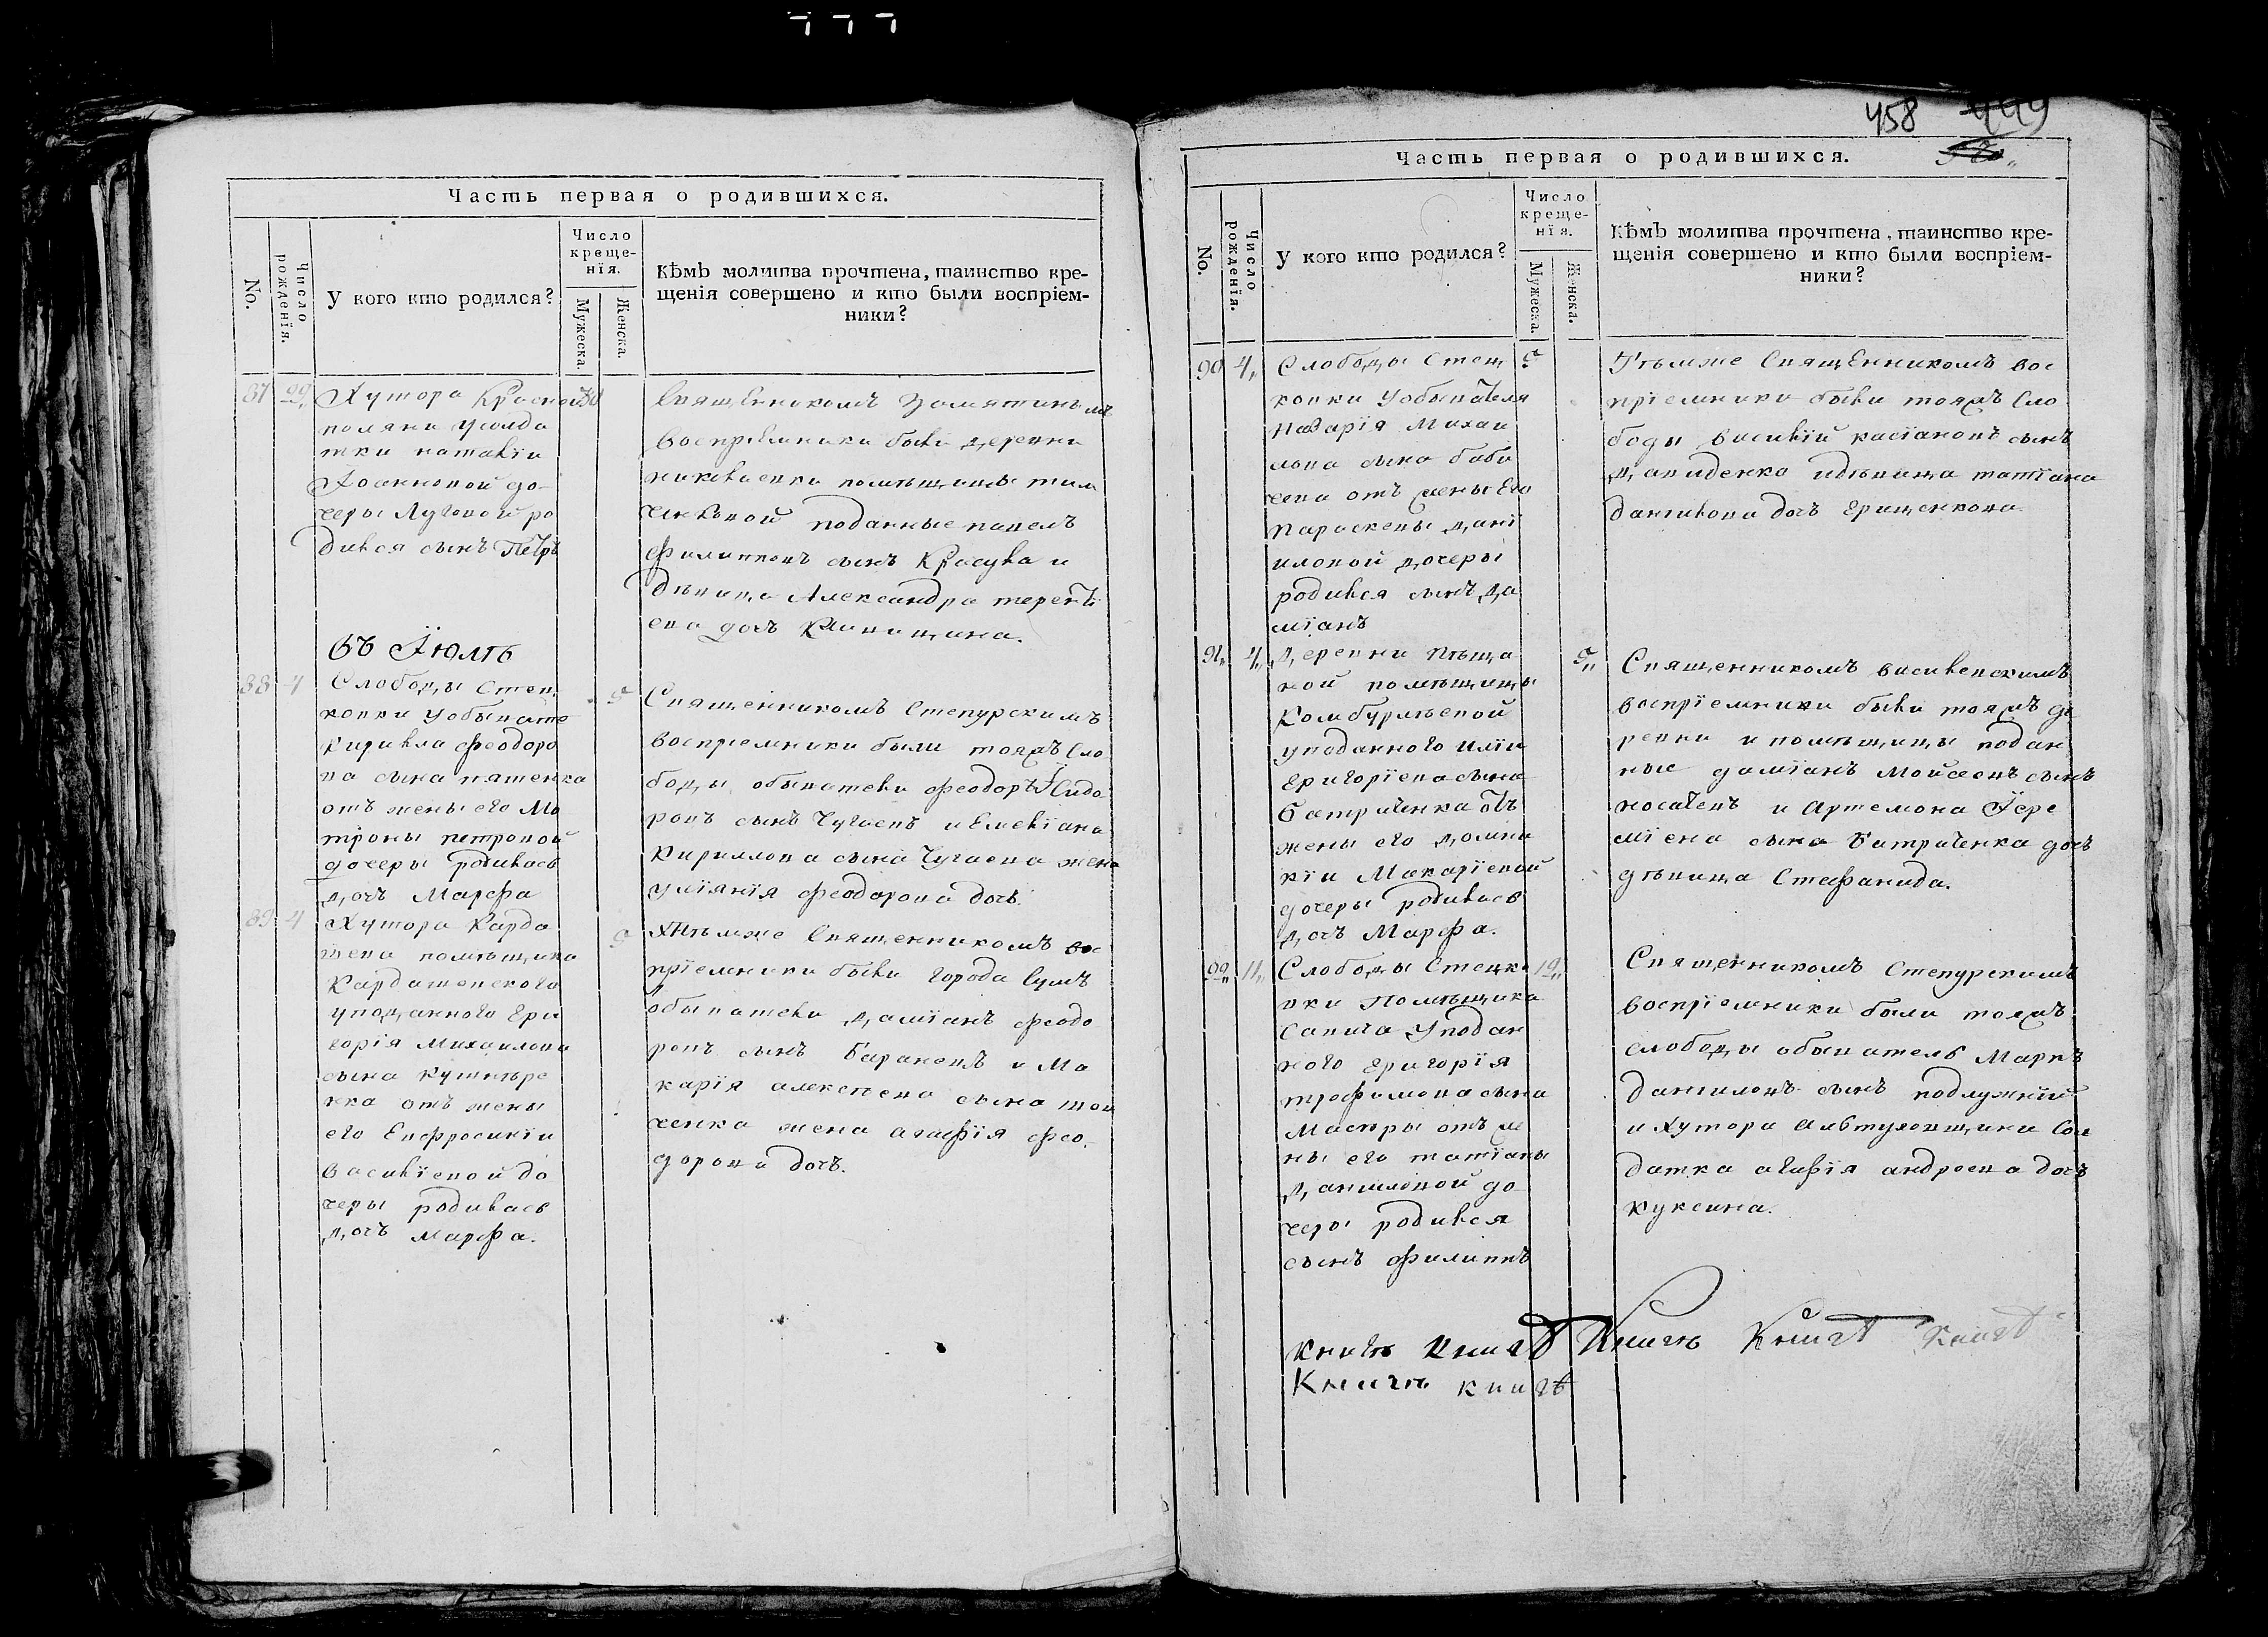 Часть первая о родившихся.
No.
Число рожденїя.
У кого кто родился?
Число
креще-
нїя.
Мужеска.
Женска.
Кѣмъ молитва прочтена, таинство кре-
щенія совершено и кто были воспріем-
ники?
87 29 Хутора Красной 30
поляни у солда
тки наталїи
Іоанновой до-
чери Луговой ро
дился сынъ Петръ
Священникомъ Замятинымъ
воспрїемники были деревни
помѣщицы
поданные павелъ
филипповъ сынъ Красуля и
дѣвица Александра терентї
ева дочь
въ Їюлѣ
88 4 Слободы Стец
ковки у обывате
кирилла феодоро
ва сына пятенка
отъ жены его Ма
троны петровой
дочеры родилась
дочь Марфа
5 Священникомъ Степурскимъ
воспрїемники были тояжъ Сло
боды обыватели феодоръ Їсидо
ровъ сынъ Чугаевъ и Емелїана
Кириллова сына Чугаева жена
улїянїя феодорова дочь.
89 4 Хутора Карда
шева помѣщика
Кардашевского
уподанного Гри
горїя Михаилова
сына
нка отъ жены
его Евфросинїи
василїевой до
черы родилась
дочь Марфа.
5 Тѣмже Священникомъ вос
прїемники были города Сумъ
обыватели дамїанъ феодо
ровъ сынъ Барановъ и Ма
карїя алексѣева сына
ченка жена агафїя фео
дорова дочь.
458 449
Часть первая о родившихся.
No.
Число рожденїя.
У кого кто родился?
Число
креще-
нїя.
Мужеска.
Женска.
Кѣмъ молитва прочтена, таинство кре-
щенія совершено и кто были воспріем-
ники?
90 4 Слободы Стец 5
ковки у обывателя
назарїя Михаи
лова сына баби
чева отъ жены Его
Параскевы данї
иловой дочеры
родился сынъ да
мїанъ
Тѣмже Священникомъ вос
прїемники были тояжъ Сло
боды василїй касїановъ сынъ
давиденко идѣвица татїана
данилова дочь Грищенкова.
91 4 деревни пѣща
ной помѣщицы
Комбурлѣевой
уподанного илїи
Григорїева сына
Батраченка отъ
жены его домни
кїи Макарїевой
дочеры родилась
дочь Марфа.
5 Священникомъ василевскимъ
воспрїемники были тояжъ де
ревни и помѣщицы подан
ные дамїанъ Мойсеевъ сынъ
носачевъ и Артемона Їере
мїева сына Батраченка дочь
дѣвица Стефанида.
92 11 Слободы Стецко 12
вки помѣщика
Савича уподан
ного Григорїя
трофимова сына
отъ же
ны его татїаны
даниловой до
черы родился
сынъ филиппъ
Священникомъ Степурскимъ
воспрїемники были тояжъ
слободы обыватель Маркъ
даниловъ сынъ подлужнїй
и Хутора Алтуховщини Сол
датка агафїя андреева дочь
куксина.
книгъ книгъ Книгъ Книгъ Книгъ
Книгъ книгъ